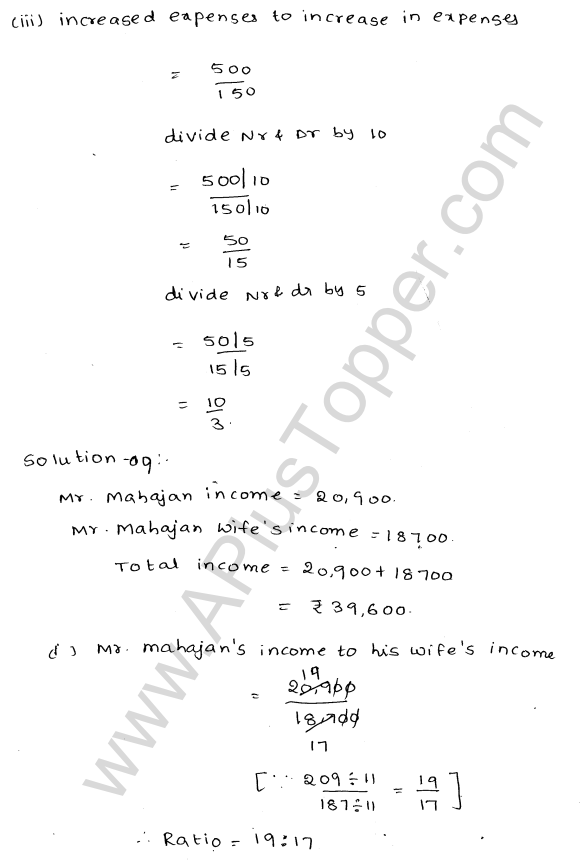 (iii) increased expenses to increase in expenses
= 500/150
divide Nr & Dr by 10
= 500/10 / 150/10
= 50/15
divide Nr & dr by 5
= 50/5 / 15/5
= 10/3.
Solution-09:.
Mr. Mahajan income = 20,900.
Mr. Mahajan wife's income = 18700.
Total income = 20,900 + 18700
= ₹ 39,600.
(i) Mr. mahajan's income to his wife's income
19
= 20,900/18,700
17
[∵ 209÷11/187÷11 = 19/17]
∴ Ratio = 19:17
www.APlusTopper.com